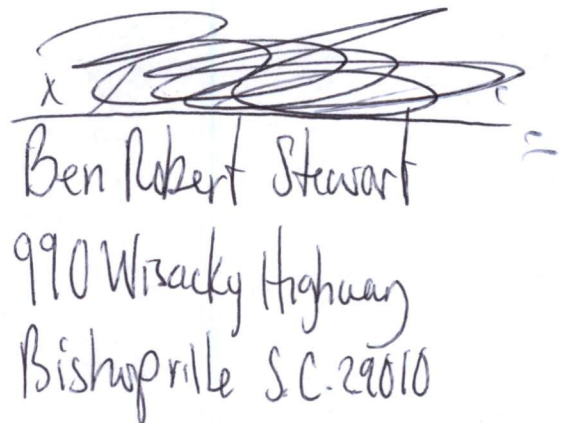 x
Ben Robert Stewart
990 Wisacky Highway
Bishopville S.C. 29010